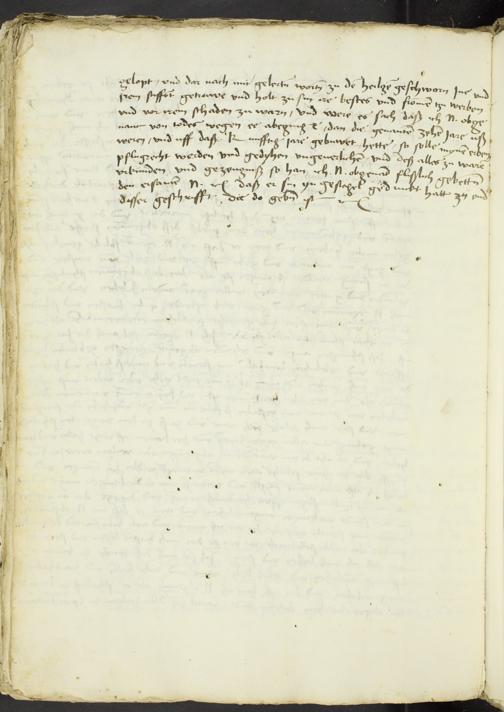 gelopt, und dar nach mit gelertn wortn zu dē heilgē geschworn Ine und
iren getruwe und holt zu sin ire bestes und fromē zu werben
und vor iren schaden zu warn, und were es sach daß ich N. obge
nant von todes wegen ee abeging ꝛc, dan die genantē zehē jare uß
weren, und uff daß jare gebuwet hette, so solle mynē erben
pflugrecht werden und gedyhen ungeverlichn und deß alles zu ware
urkunden, und gezeugniß so han ich N. obgenāt flißlich gebettn
den ersamē N. daß er sin Ingesiegel hatt zu end
disser geschrifft, die do gebn ist